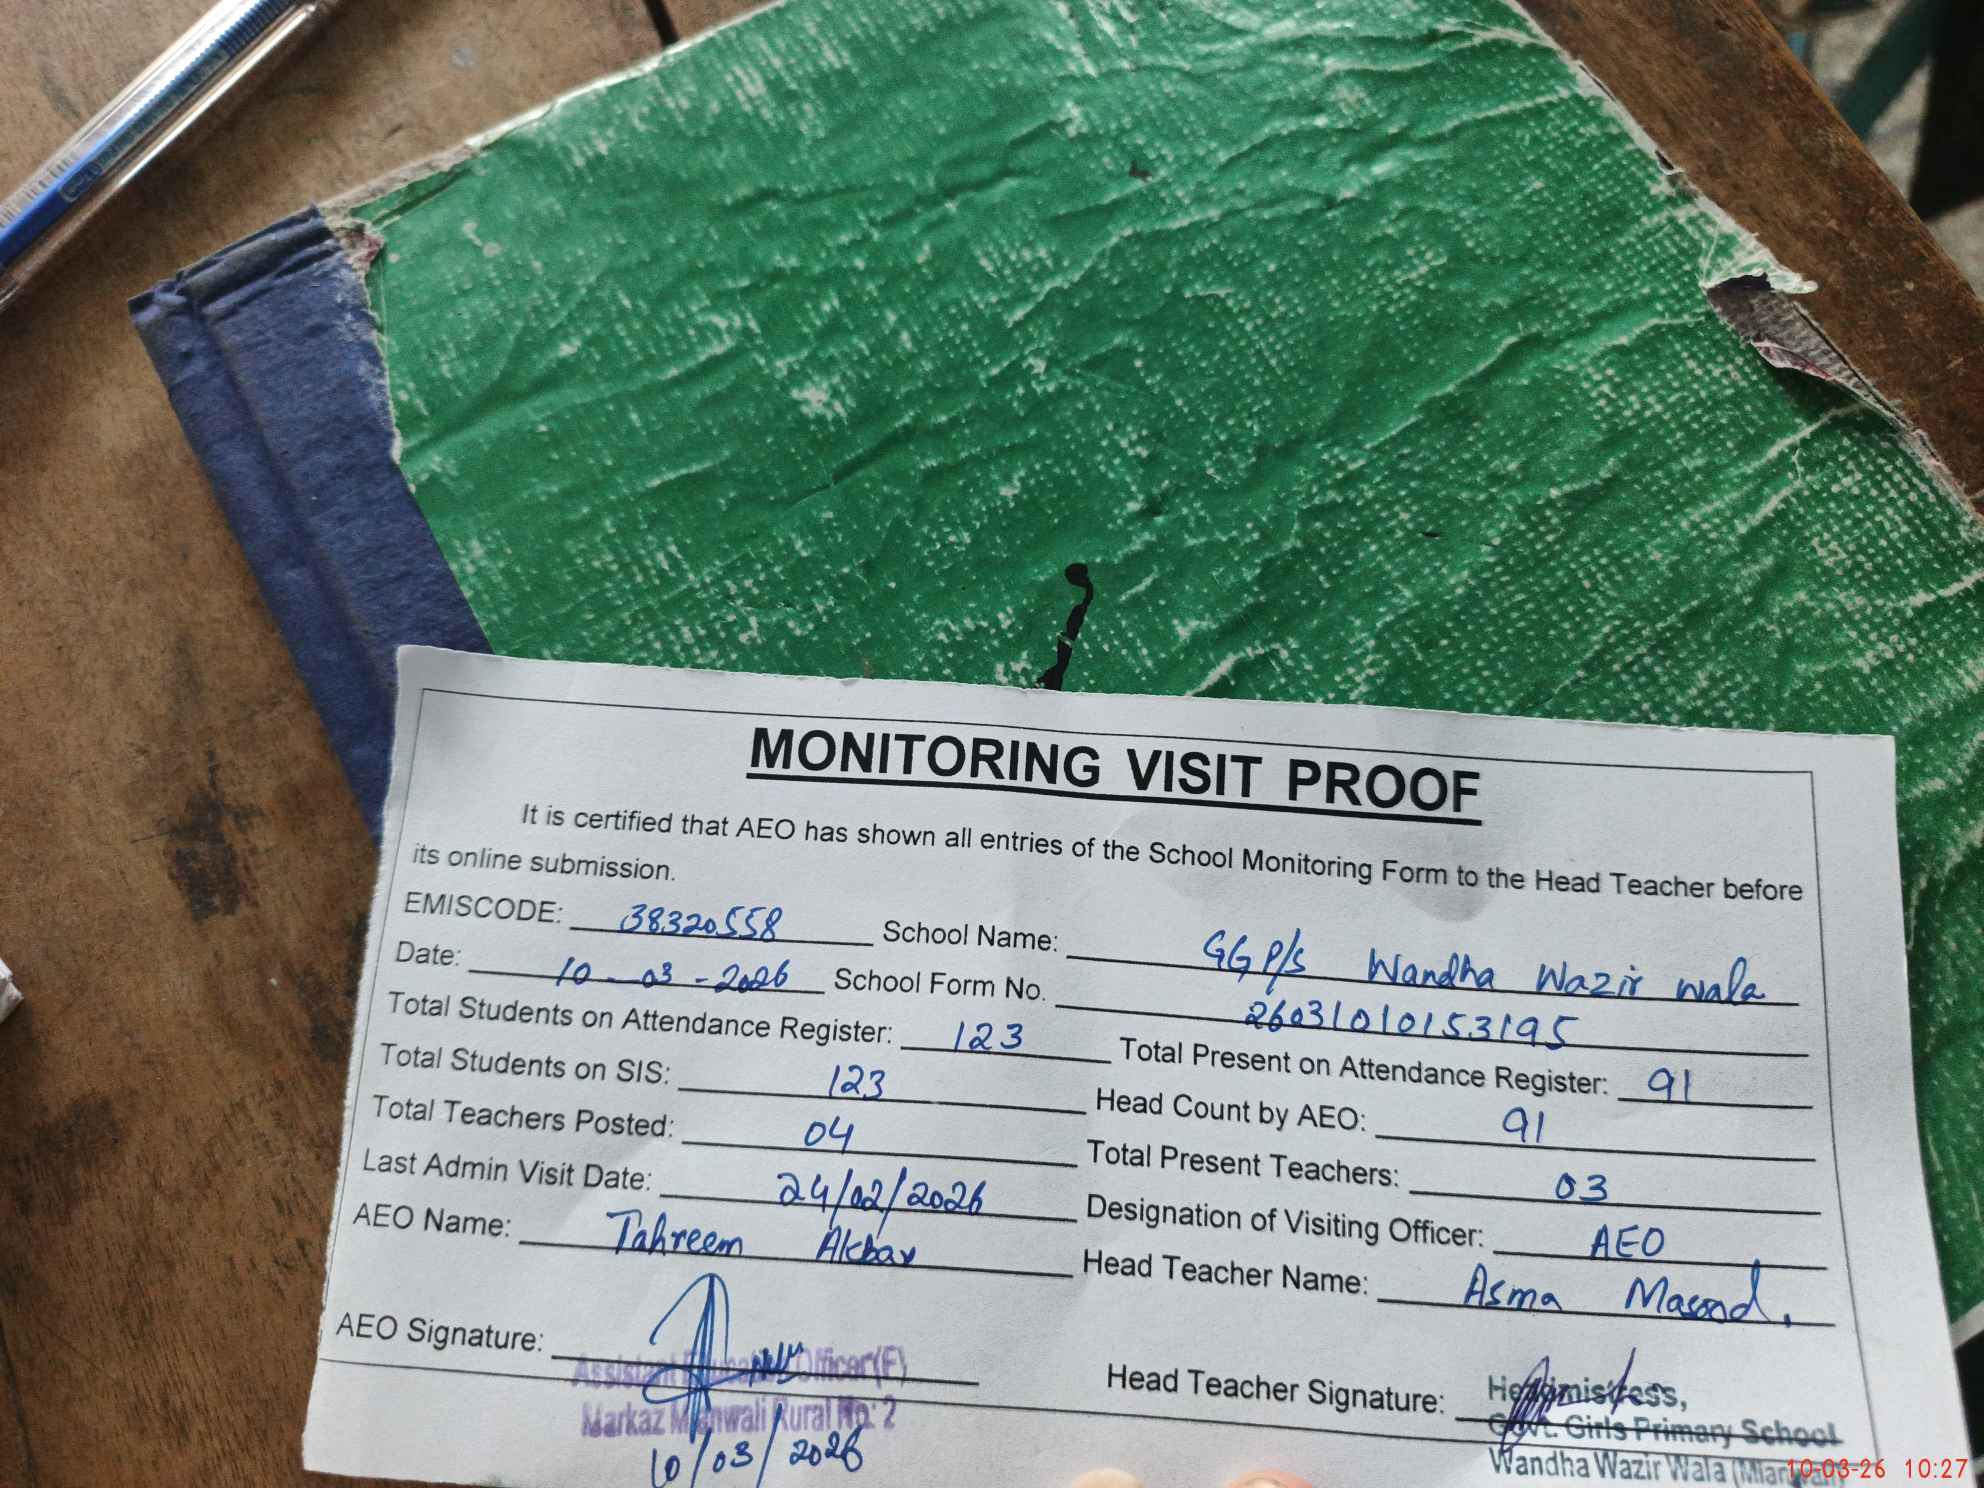 MONITORING VISIT PROOF
It is certified that AEO has shown all entries of the School Monitoring Form to the Head Teacher before
its online submission.
EMISCODE: 38320558 School Name: GGP/S Wandha Wazir Wala
Date: 10-03-2026 School Form No. 26031010153195
Total Students on Attendance Register: 123 Total Present on Attendance Register: 91
Total Students on SIS: 123 Head Count by AEO: 91
Total Teachers Posted: 04 Total Present Teachers: 03
Last Admin Visit Date: 24/02/2026 Designation of Visiting Officer: AEO
AEO Name: Tahreem Akbar Head Teacher Name: Asma Masood.
AEO Signature: Head Teacher Signature:
Assistant Education Officer(F)
Markaz Mianwali Rural No: 2
10/03/2026
Headmistress,
Govt. Girls Primary School
Wandha Wazir Wala (Mianwali)
10-03-26 10:27